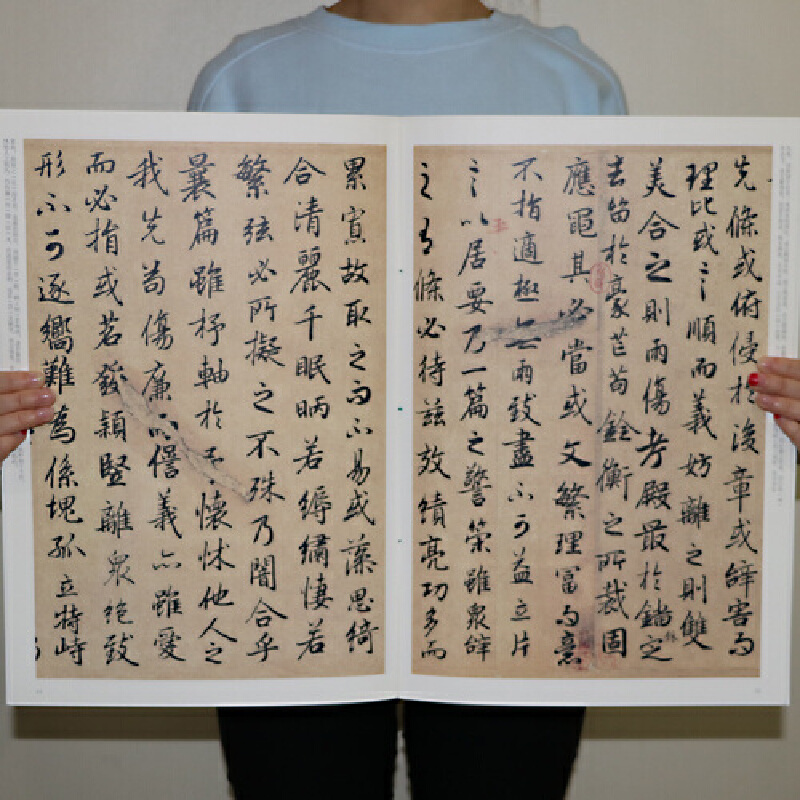 先條或俯侵於後章或辭害而
理比或言順而義妨離之則雙
美合之則兩傷考殿最於錙銖定
去留於豪芒苟銓衡之所裁固
應繩其必當或文繁理富而意
不指適極無兩致盡不可益立片
言以居要乃一篇之警策雖衆辭
之有條必待茲效績亮功多而
累寡故取足而不易或藻思綺
合清麗千眠炳若縟繡悽若
繁弦必所擬之不殊乃闇合乎
曩篇雖杼軸於予懷怵他人之
我先苟傷廉而愆義亦雖愛
而必捐或苕發穎豎離衆絕致
形不可逐嚮難為係塊孤立特峙